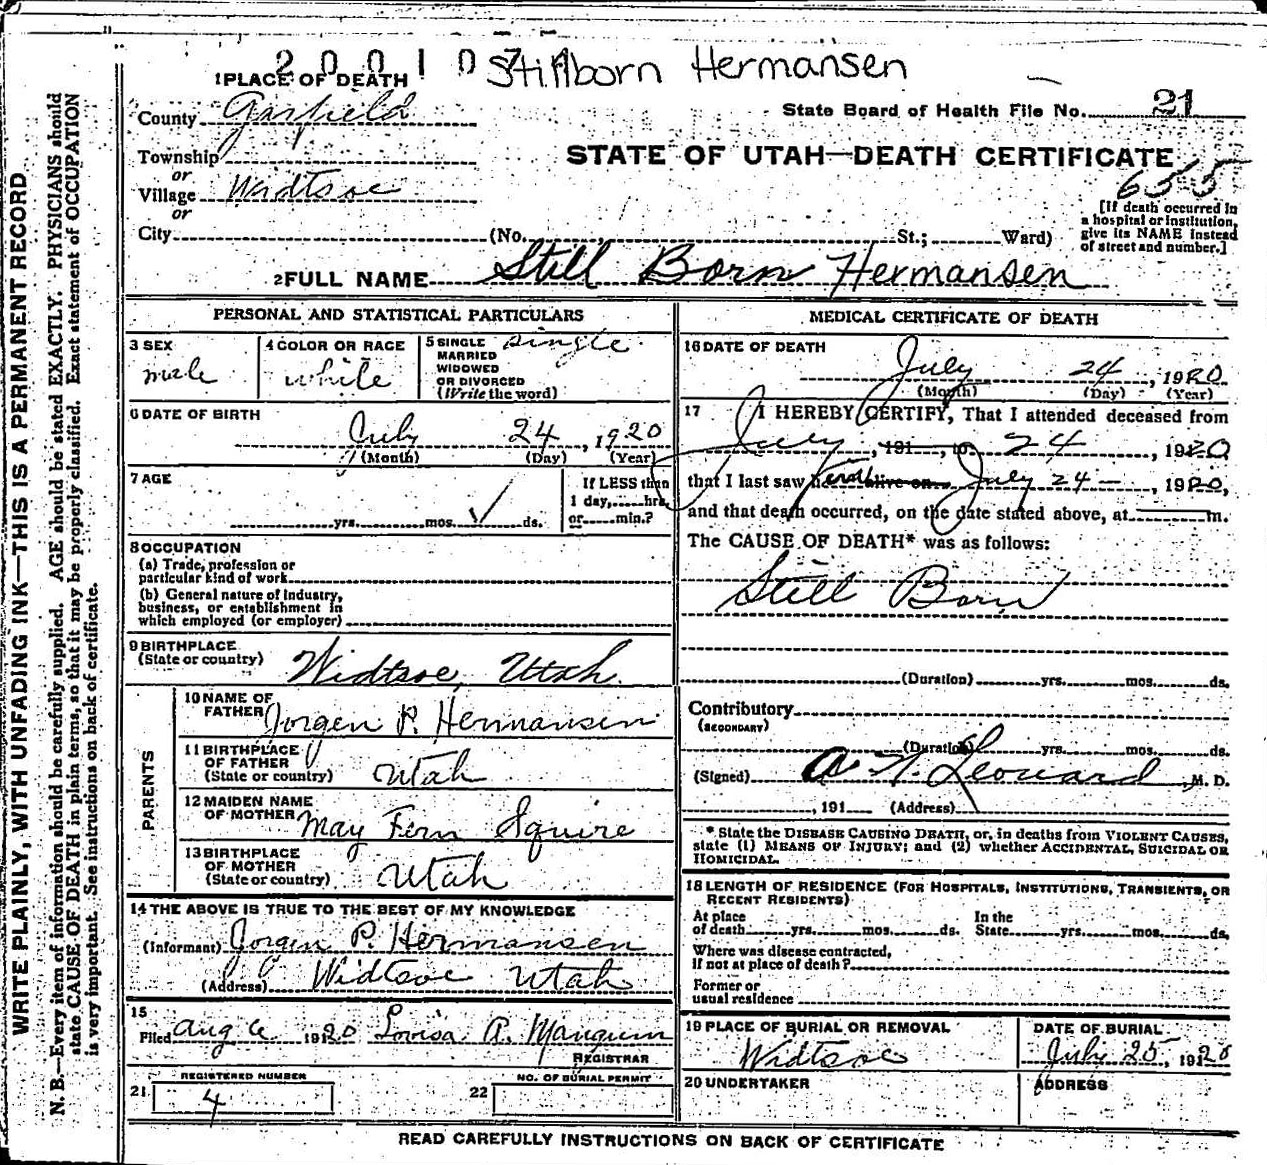 2 0 0 1 0 7 Stillborn Hermansen
1 PLACE OF DEATH
State Board of Health File No. 21
County Garfield
STATE OF UTAH—DEATH CERTIFICATE
Township
655
or
Village Widtsoe
or
[If death occurred in a hospital or institution, give its NAME instead of street and number.]
City (No. , St.; Ward)
2 FULL NAME Still Born Hermansen
PERSONAL AND STATISTICAL PARTICULARS
3 SEX
male
4 COLOR OR RACE
white
5 SINGLE MARRIED WIDOWED OR DIVORCED (Write the word)
single
6 DATE OF BIRTH
July 24, 1920
(Month) (Day) (Year)
7 AGE
yrs. mos. ✓ ds.
If LESS than 1 day, hrs. or min.?
8 OCCUPATION
(a) Trade, profession or
particular kind of work
(b) General nature of industry,
business, or establishment in
which employed (or employer)
9 BIRTHPLACE
(State or country) Widtsoe, Utah.
PARENTS
10 NAME OF
FATHER Jorgen P. Hermansen
11 BIRTHPLACE
OF FATHER
(State or country) Utah
12 MAIDEN NAME
OF MOTHER May Fern Squire
13 BIRTHPLACE
OF MOTHER
(State or country) Utah
14 THE ABOVE IS TRUE TO THE BEST OF MY KNOWLEDGE
(Informant) Jorgen P. Hermansen
(Address) Widtsoe Utah
15
Filed Aug 6 1920 Lovisa A. Mangum
REGISTRAR
REGISTERED NUMBER
21 4
NO. OF BURIAL PERMIT
22
MEDICAL CERTIFICATE OF DEATH
16 DATE OF DEATH
July 24, 1920
(Month) (Day) (Year)
17 I HEREBY CERTIFY, That I attended deceased from
July, 191 , to 24, 1920
that I last saw h alive on July 24 —, 1920,
and that death occurred, on the date stated above, at m.
The CAUSE OF DEATH* was as follows:
Still Born
(Duration) yrs. mos. ds.
Contributory
(SECONDARY)
(Duration) yrs. mos. ds.
(Signed) Leonard, M. D.
, 191 (Address)
* State the DISEASE CAUSING DEATH, or, in deaths from VIOLENT CAUSES,
state (1) MEANS OF INJURY; and (2) whether ACCIDENTAL, SUICIDAL OR
HOMICIDAL.
18 LENGTH OF RESIDENCE (FOR HOSPITALS, INSTITUTIONS, TRANSIENTS, OR
RECENT RESIDENTS)
At place of death yrs. mos. ds. In the State yrs. mos. ds.
Where was disease contracted,
if not at place of death?
Former or
usual residence
19 PLACE OF BURIAL OR REMOVAL
Widtsoe
DATE OF BURIAL
July 25, 1920
20 UNDERTAKER
ADDRESS
READ CAREFULLY INSTRUCTIONS ON BACK OF CERTIFICATE
WRITE PLAINLY, WITH UNFADING INK—THIS IS A PERMANENT RECORD
N. B.—Every item of information should be carefully supplied. AGE should be stated EXACTLY. PHYSICIANS should
state CAUSE OF DEATH in plain terms, so that it may be properly classified. Exact statement of OCCUPATION
is very important. See instructions on back of certificate.